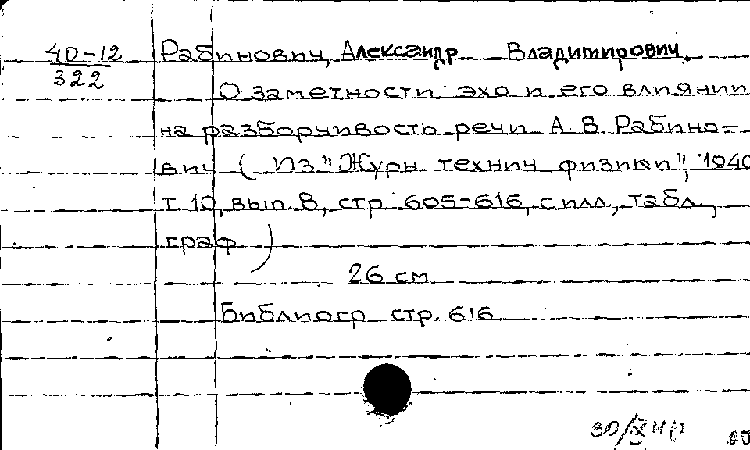 40-12
322
Рабинович, Александр Владимирович.
О заметности эхо и его влиянии
на разборчивость речи А. В. Рабино-
вич (Из "Журн технич физики", 1940
т 10, вып. 8, стр 605-616, с илл, табл,
граф)
26 см
Библиогр стр. 616